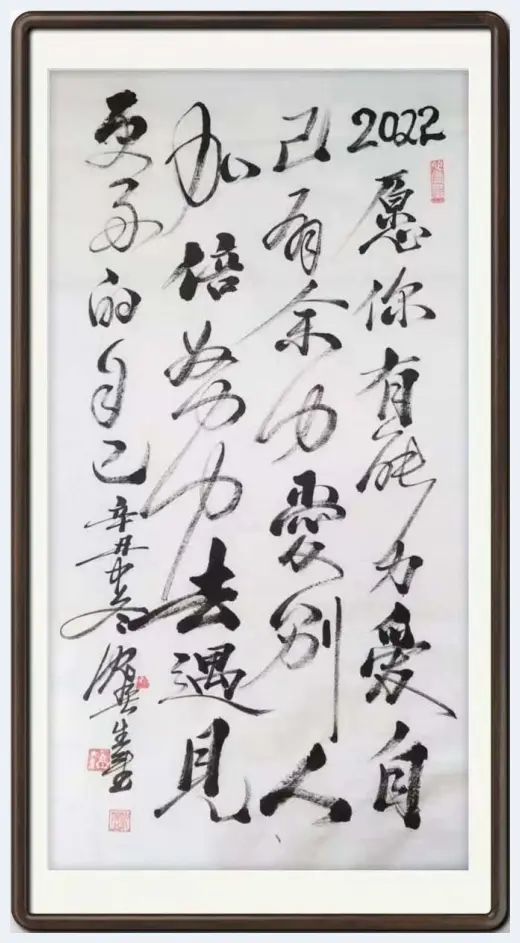 2022
愿你有能力爱自
己有余力爱别人
加倍努力去遇见
更好的自己
辛丑中冬